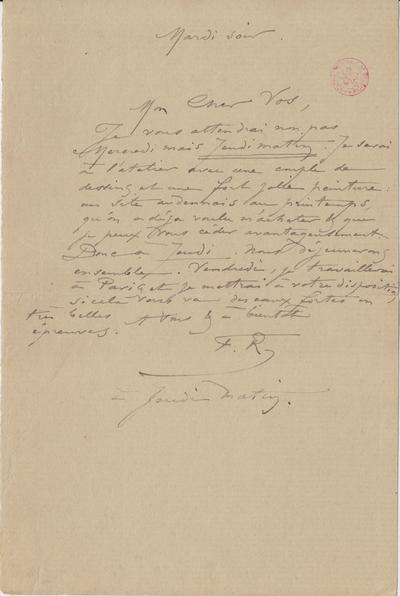 Mardi soir.
Mon Cher Vos,
Je vous attendrai non pas
Mercredi mais Jeudi matin. Je serai
à l'atelier avec une couple de
dessins et une fort jolie peinture :
un site ardennais au printemps,
qu'on a déjà voulu m'acheter & que
je peux vous céder avantageusement
Donc à Jeudi. Nous déjeunerons
ensemble. Vendredi, je travaillerai
à Paris et je mettrai à votre disposition
si cela vous va des eaux fortes en
très belles épreuves. A vous & à bientôt
F. R.
à Jeudi Matin.